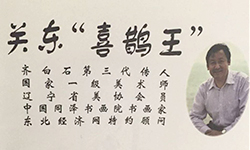 关东“喜鹊王”
齐白石第三代传人
国家一级美术师
辽宁省美协会员
中国同泽书画院书画家
东北经济网特约顾问